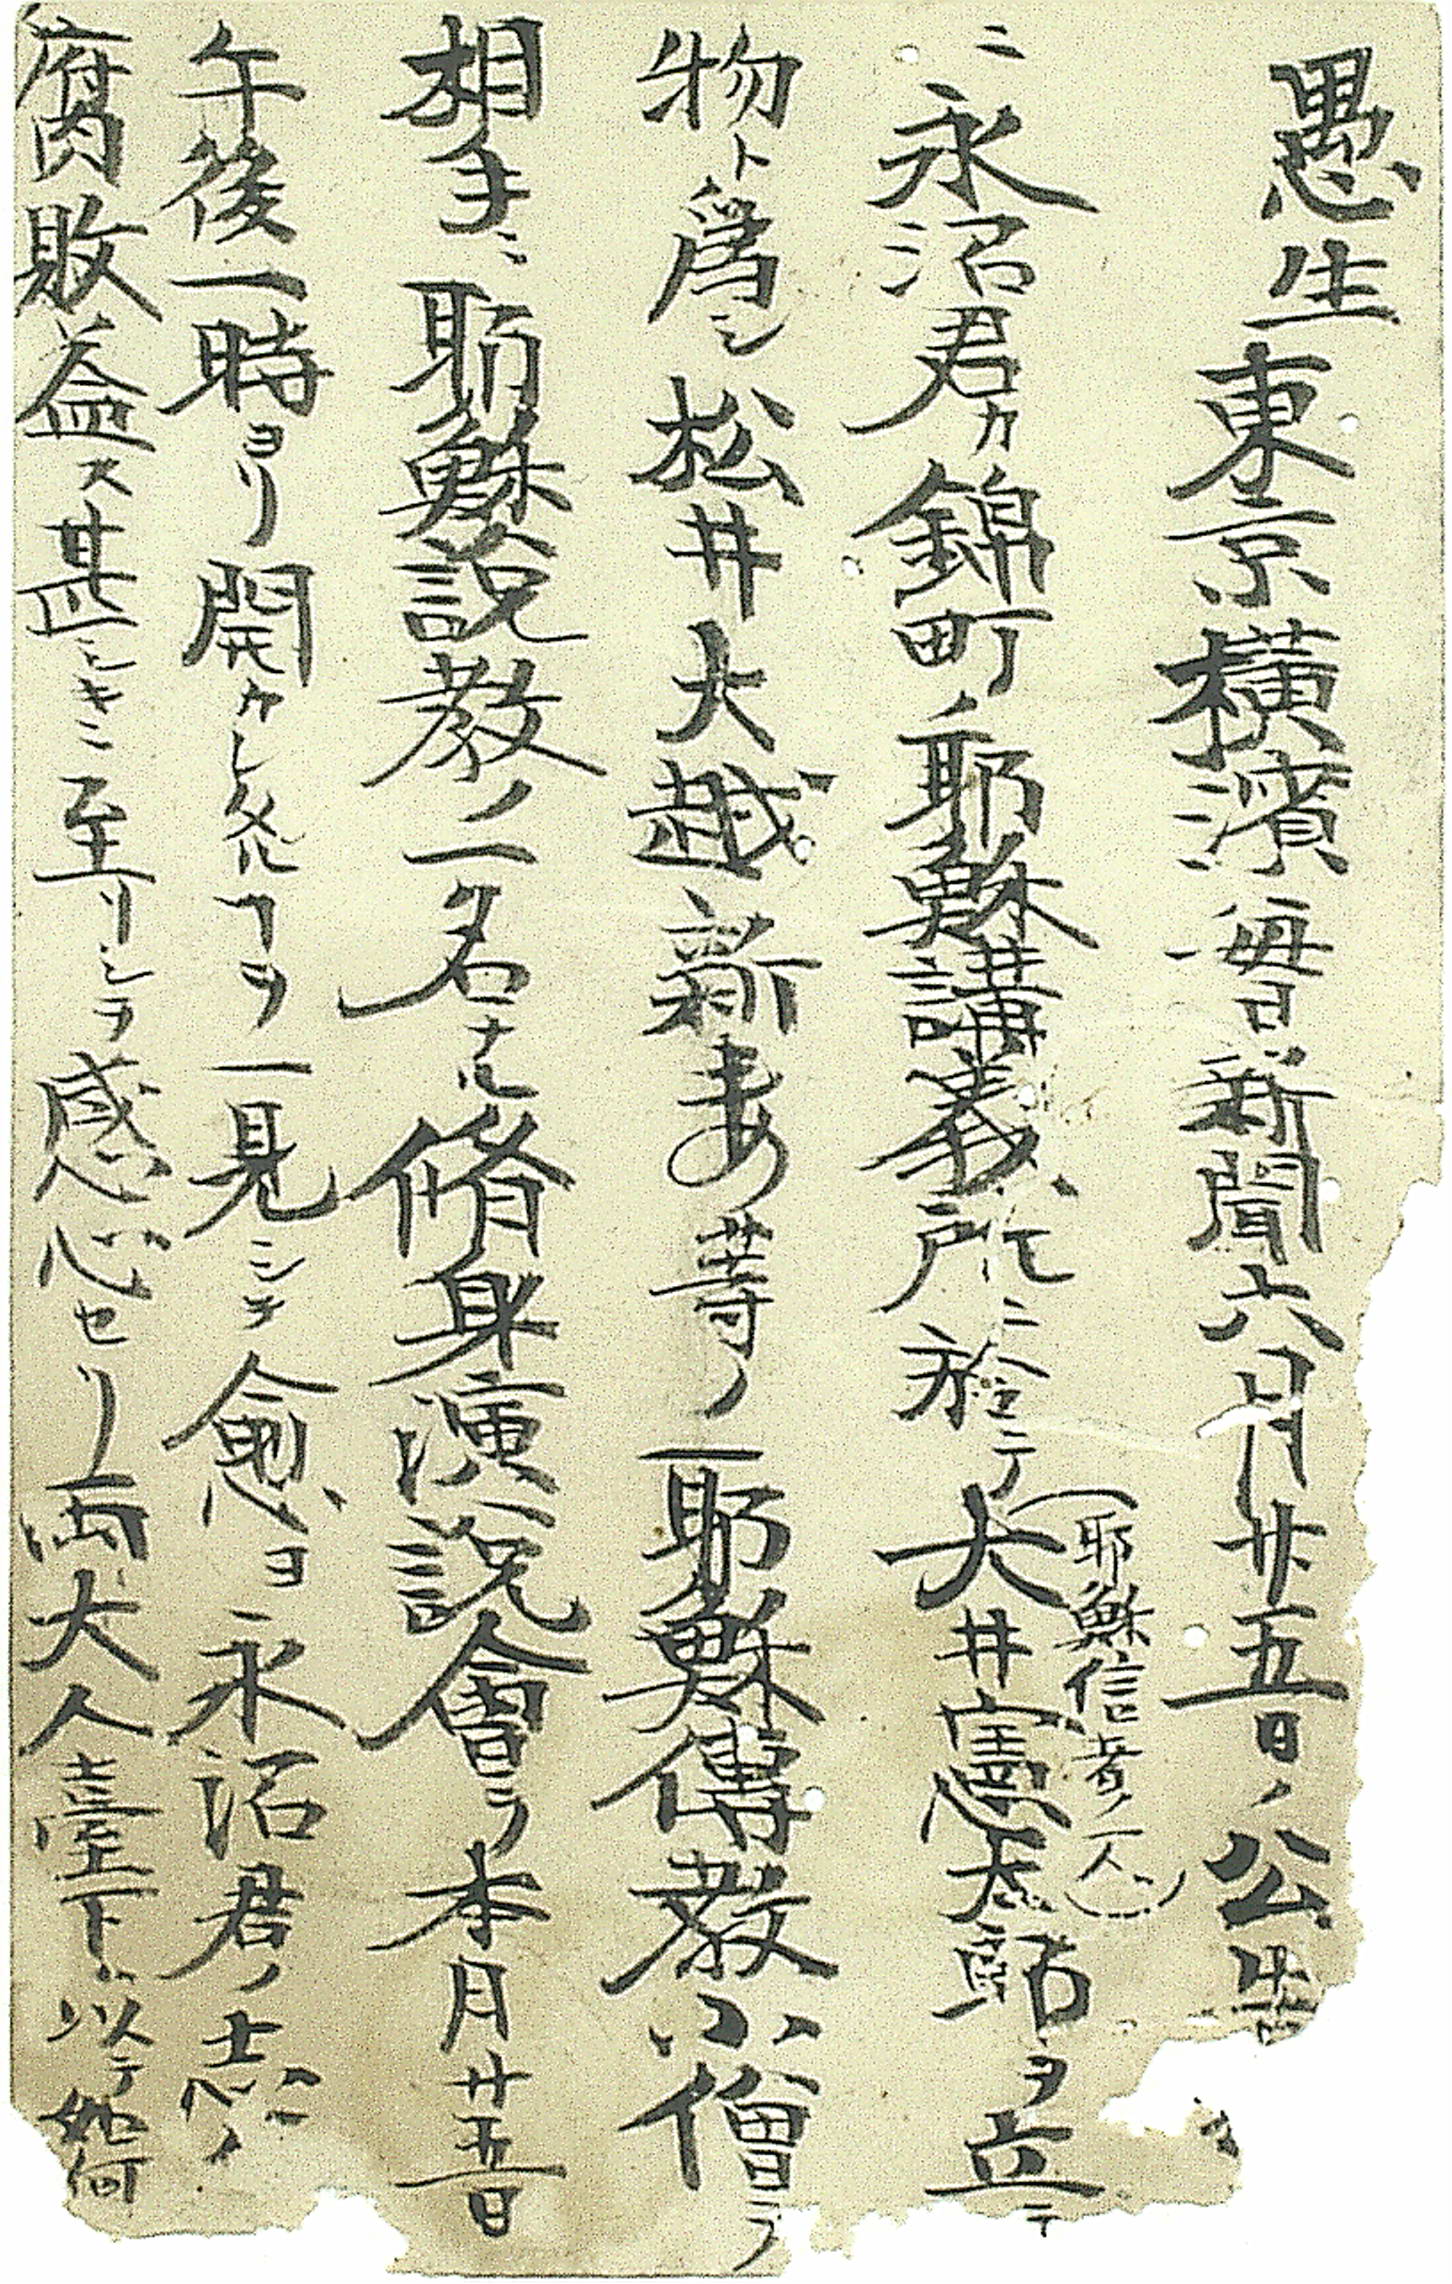 愚生東京横濱毎日新聞六月廿五日ノ公告
ニ永沼君カ錦町ノ耶蘇講義所ニ於テ大井憲太郎ヲ立テ
(耶蘇信者ノ一人)
物ト為シ松井大越新妻等ノ一耶蘇傳教小僧ヲ
相手ニ耶蘇説教ノ一名ナル脩身演説會ヲ本月廿五日
午後一時ヨリ開カレタルヿヲ一見シテ愈ヨ永沼君ノ志ノ
腐敗益ス甚シキニ至リシヲ感心セリ両大人臺下以テ如何